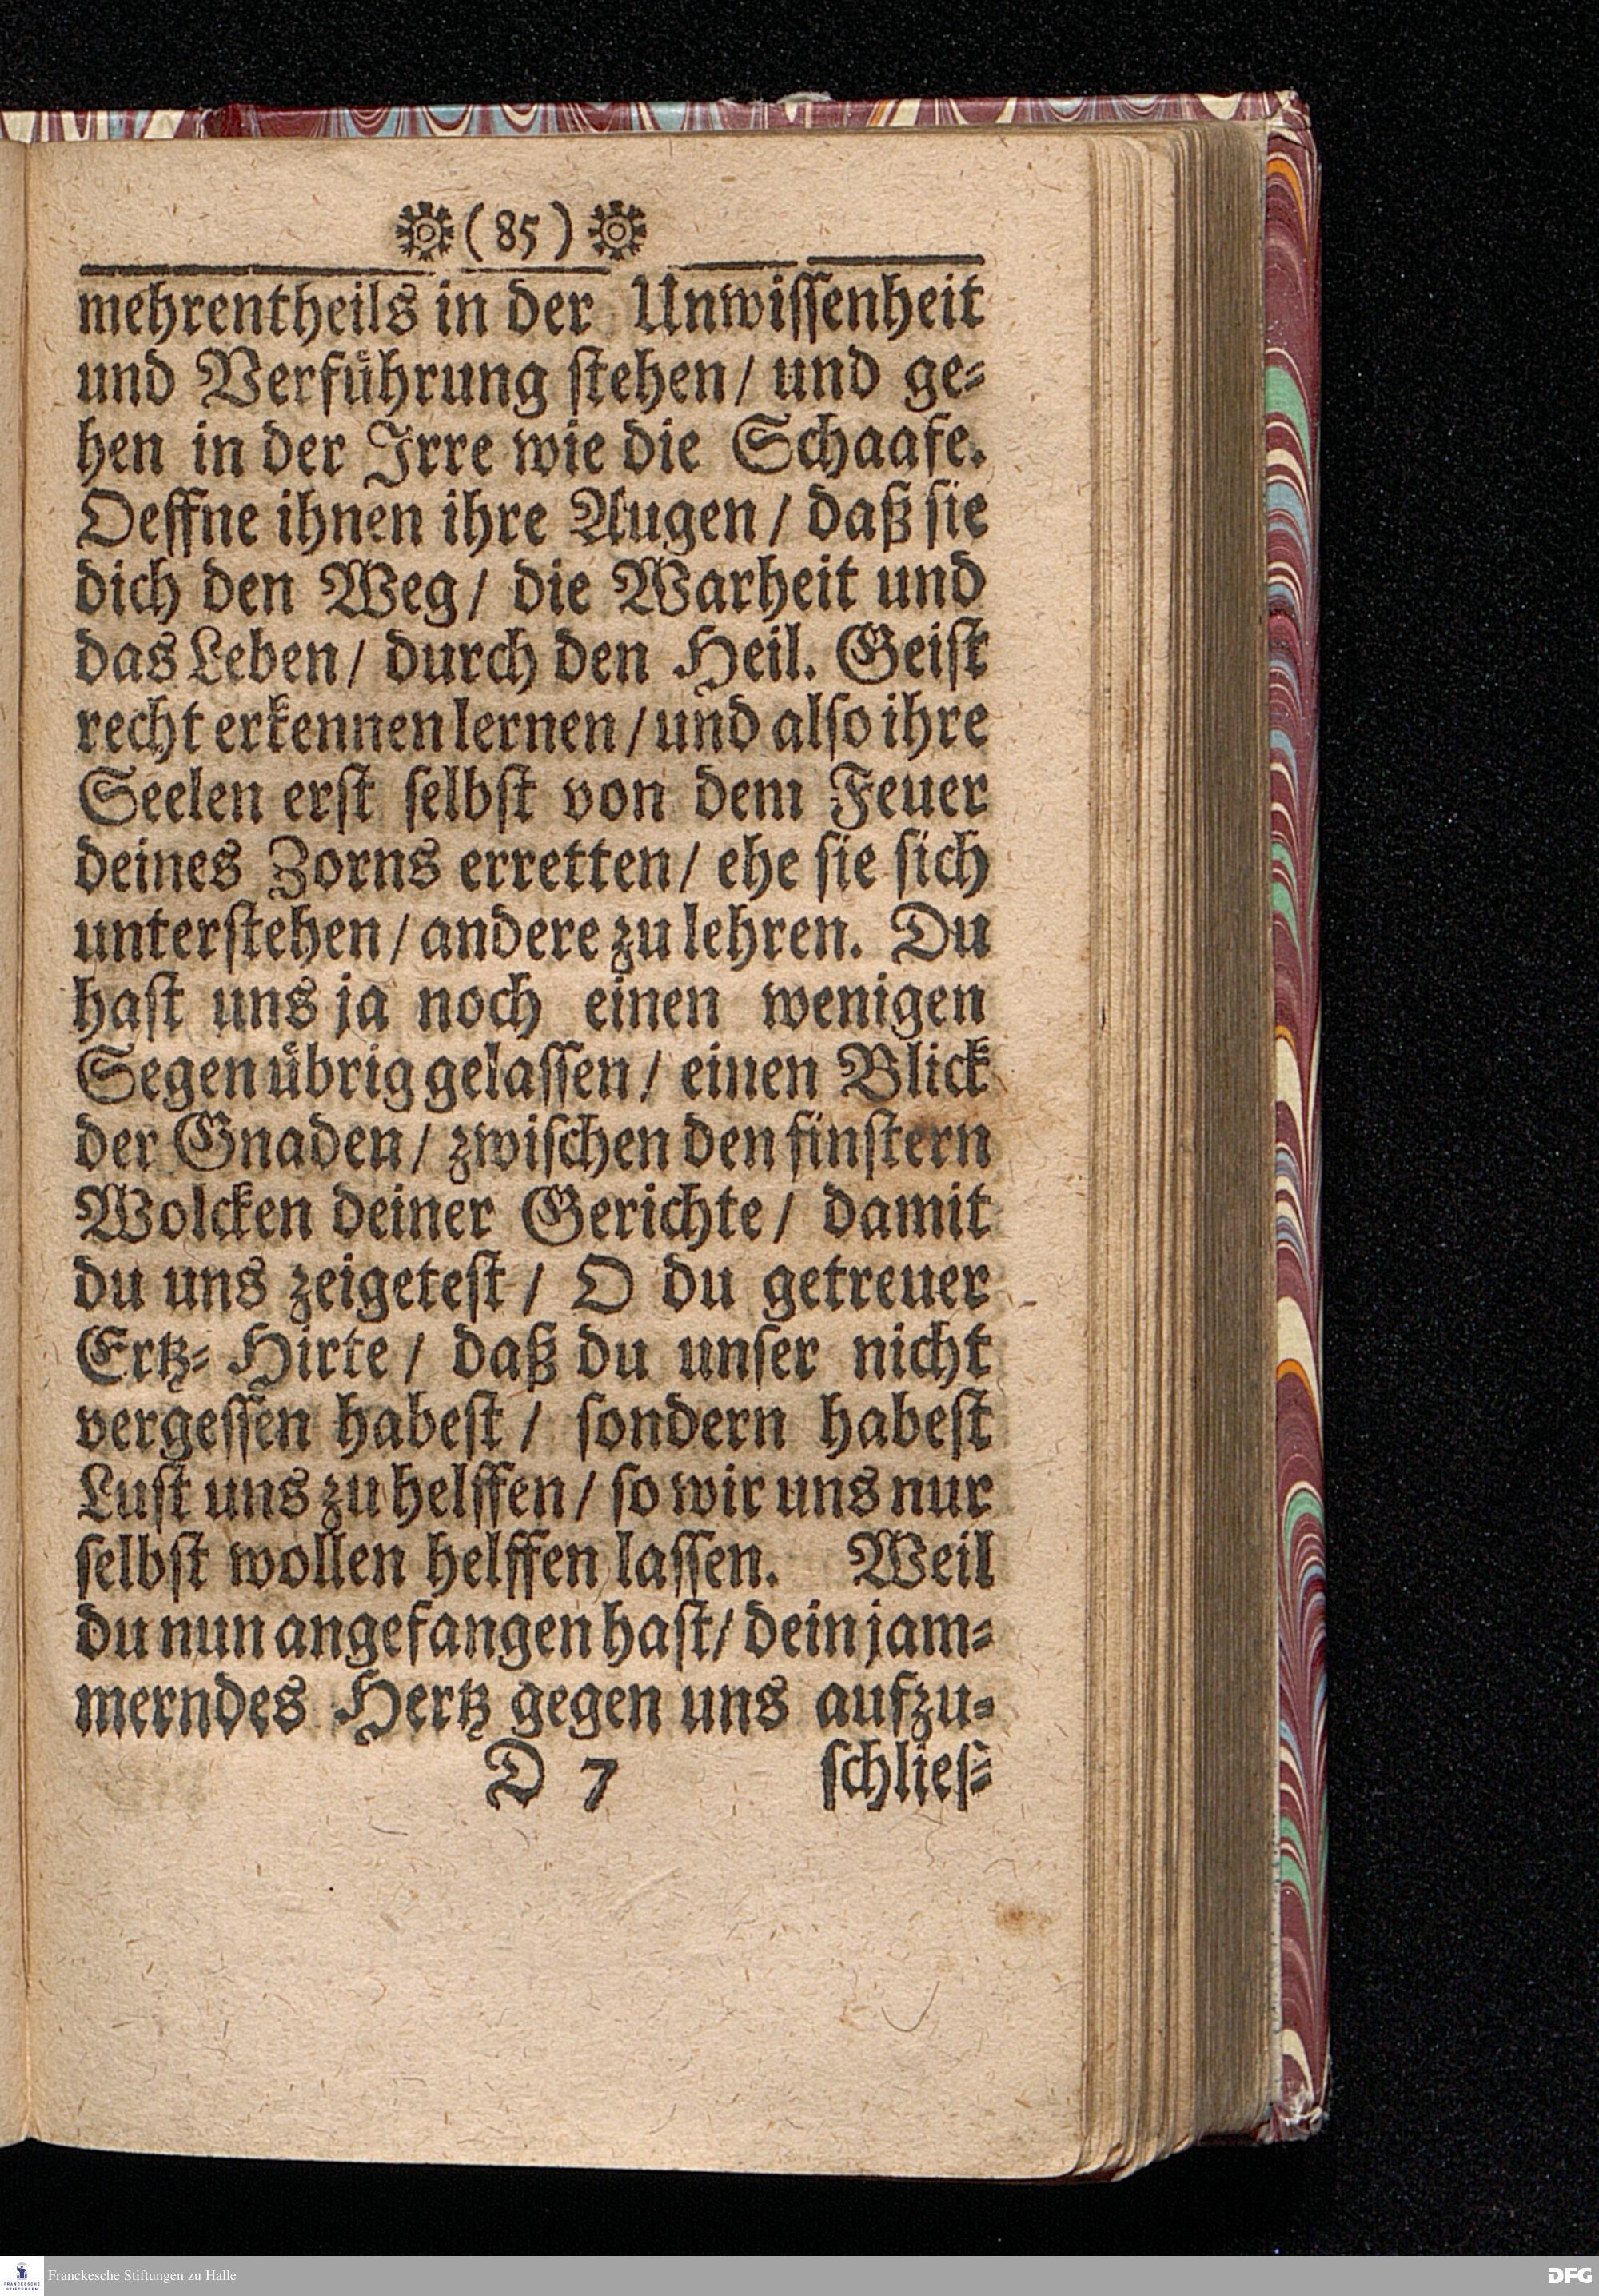 (85)
mehrentheils in der Unwissenheit
und Verführung stehen/ und ge-
hen in der Irre wie die Schaafe.
Oeffne ihnen ihre Augen/ daß sie
dich den Weg/ die Warheit und
das Leben/ durch den Heil. Geist
recht erkennen lernen/ und also ihre
Seelen erst selbst von dem Feuer
deines Zorns erretten/ ehe sie sich
unterstehen/ andere zu lehren. Du
hast uns ja noch einen wenigen
Segen übrig gelassen/ einen Blick
der Gnaden/ zwischen den finstern
Wolcken deiner Gerichte/ damit
du uns zeigetest/ O du getreuer
Ertz-Hirte/ daß du unser nicht
vergessen habest/ sondern habest
Lust uns zu helffen/ so wir uns nur
selbst wollen helffen lassen. Weil
du nun angefangen hast/ dein jam-
merndes Hertz gegen uns aufzu-
D 7 schlies-
Franckesche Stiftungen zu Halle
FRANCKESCHE
STIFTUNGEN
DFG